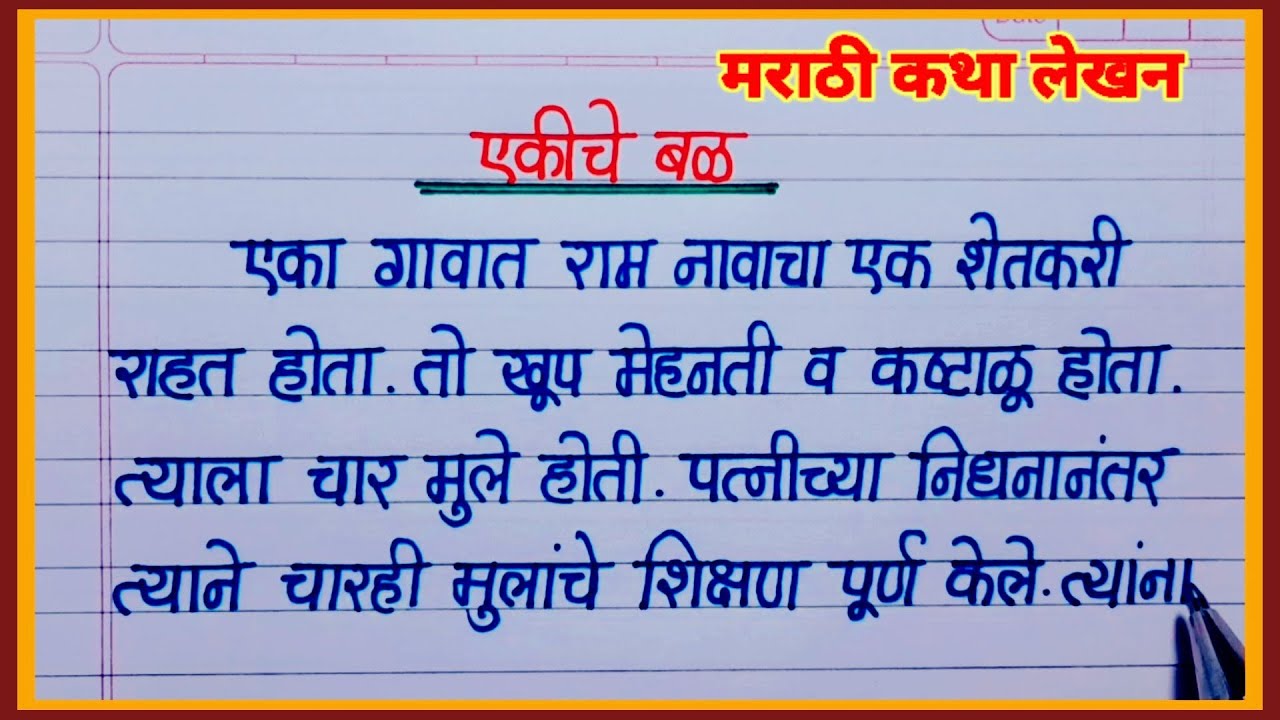 मराठी कथा लेखन
एकीचे बळ
एका गावात राम नावाचा एक शेतकरी
राहत होता. तो खूप मेहनती व कष्टाळू होता.
त्याला चार मुले होती. पत्नीच्या निधनानंतर
त्याने चारही मुलांचे शिक्षण पूर्ण केले. त्यांना